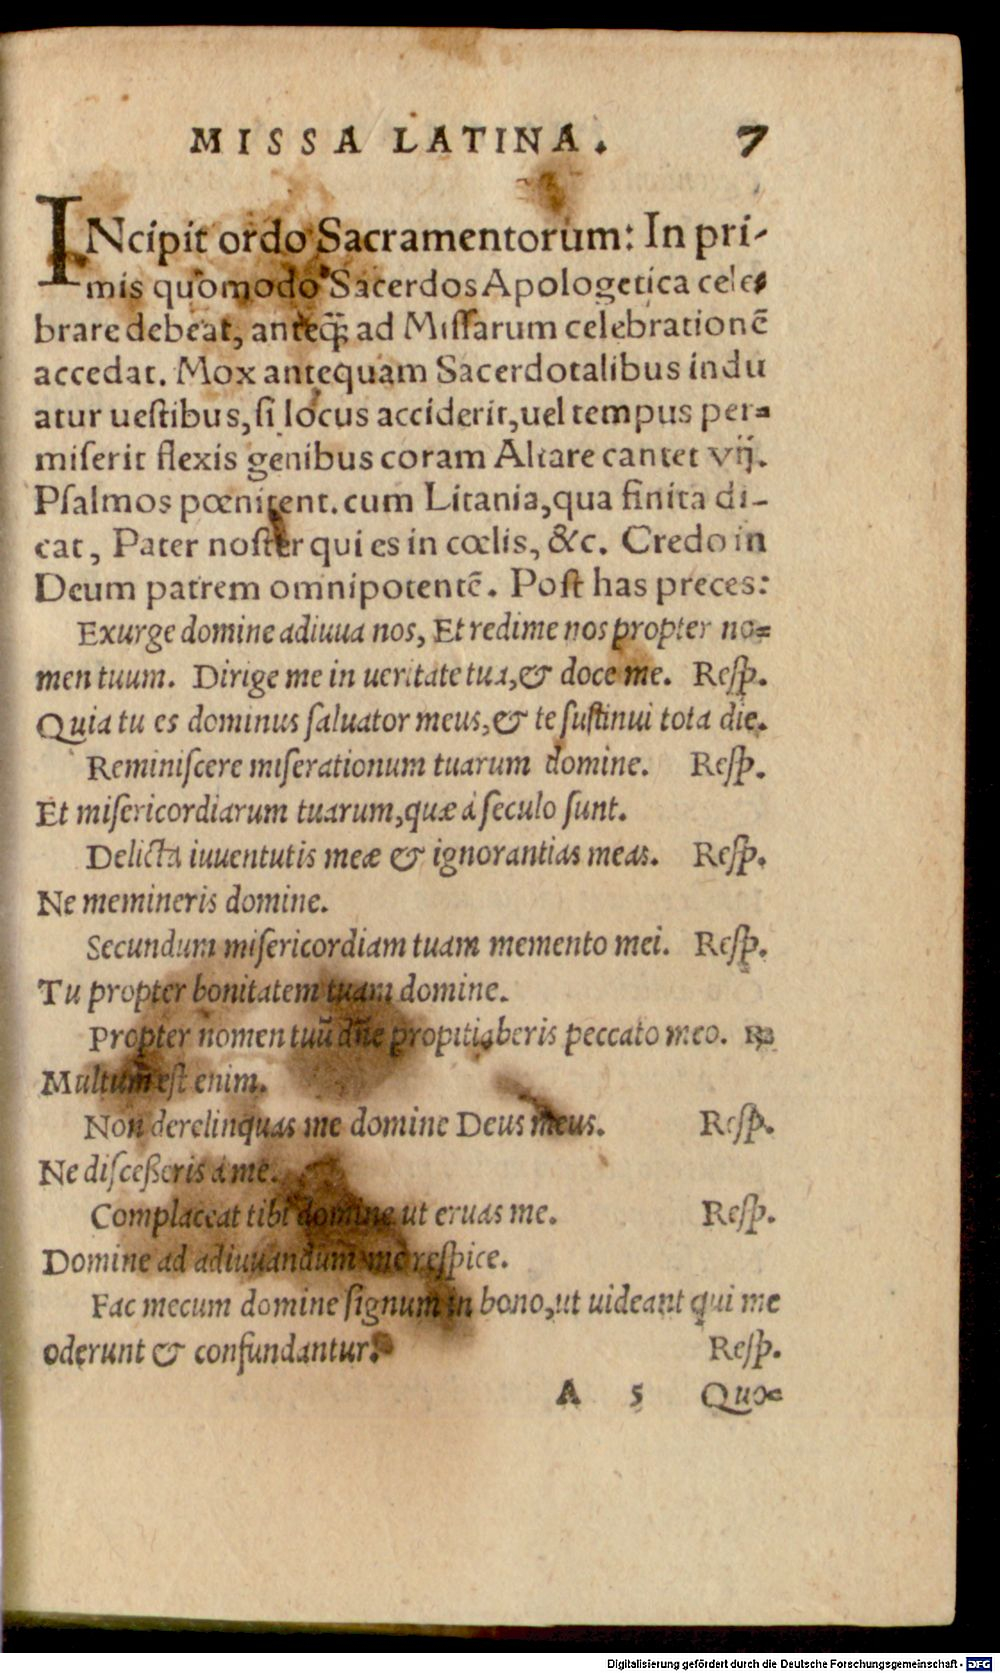 MISSA LATINA. 7
INcipit ordo Sacramentorum: In pri-
mis quomodo Sacerdos Apologetica cele-
brare debeat, anteq̃; ad Missarum celebrationẽ
accedat. Mox antequam Sacerdotalibus indu
atur uestibus, si locus acciderit, uel tempus per-
miserit flexis genibus coram Altare cantet vij.
Psalmos pœnitent. cum Litania, qua finita di-
cat, Pater noster qui es in cœlis, &c. Credo in
Deum patrem omnipotentẽ. Post has preces:
Exurge domine adiuua nos, Et redime nos propter no-
men tuum. Dirige me in ueritate tua, & doce me. Resp.
Quia tu es dominus saluator meus, & te sustinui tota die.
Reminiscere miserationum tuarum domine. Resp.
Et misericordiarum tuarum, quæ à seculo sunt.
Delicta iuuentutis meæ & ignorantias meas. Resp.
Ne memineris domine.
Secundum misericordiam tuam memento mei. Resp.
Tu propter bonitatem tuam domine.
Propter nomen tuũ dñe propitiaberis peccato meo. ℞
Multum est enim.
Non derelinquas me domine Deus meus. Resp.
Ne discesseris à me.
Complaceat tibi domine ut eruas me. Resp.
Domine ad adiuuandum me respice.
Fac mecum domine signum in bono, ut uideant qui me
oderunt & confundantur. Resp.
A 5 Quo-
Digitalisierung gefördert durch die Deutsche Forschungsgemeinschaft - DFG